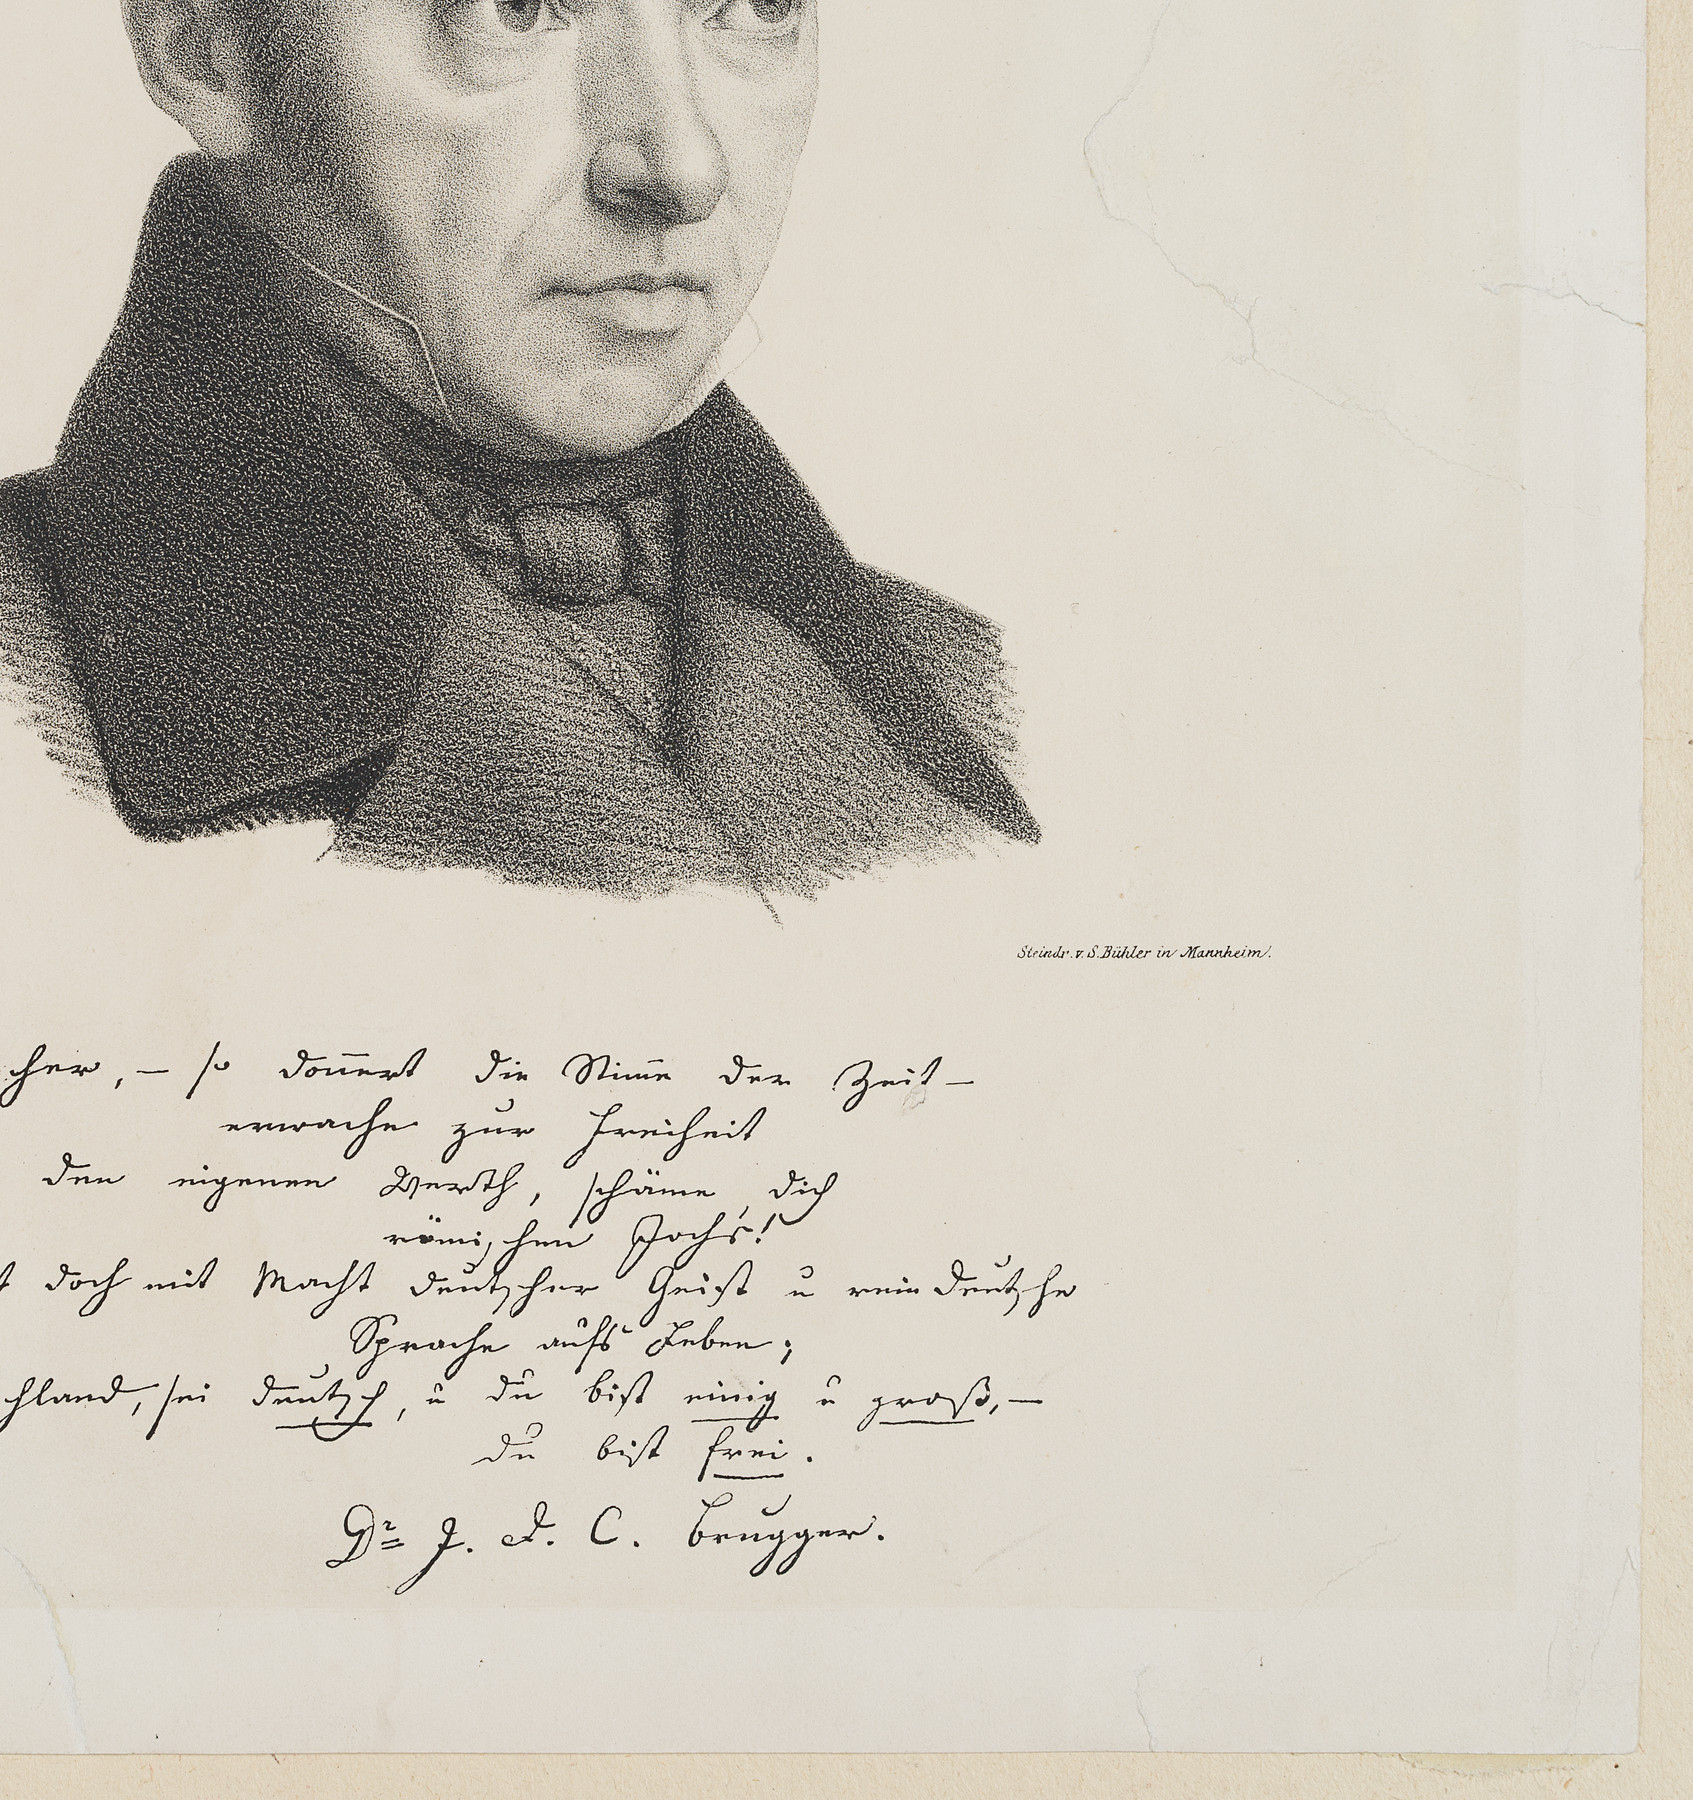 Steindr. v. S. Bühler in Mannheim.
cher, — so don̄ert die Stim̄e der Zeit —
erwache zur Freiheit
den eigenen Werth, schäme dich
römischen Joch's!
t doch mit Macht deutscher Geist u rein deutsche
Sprache aufs Leben;
chland, sei deutsch, u du bist einig u groß, —
du bist frei.
Dr J. D. C. Brugger.